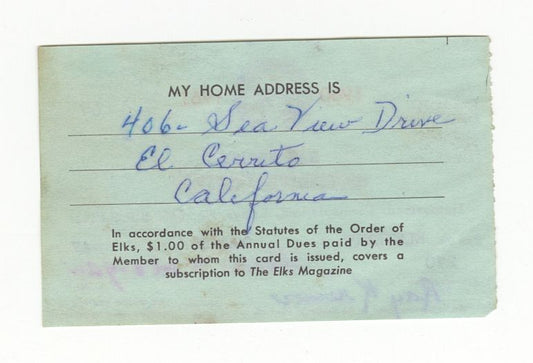 MY HOME ADDRESS IS
406- Sea View Drive
El Cerrito
California
In accordance with the Statutes of the Order of
Elks, $1.00 of the Annual Dues paid by the
Member to whom this card is issued, covers a
subscription to The Elks Magazine